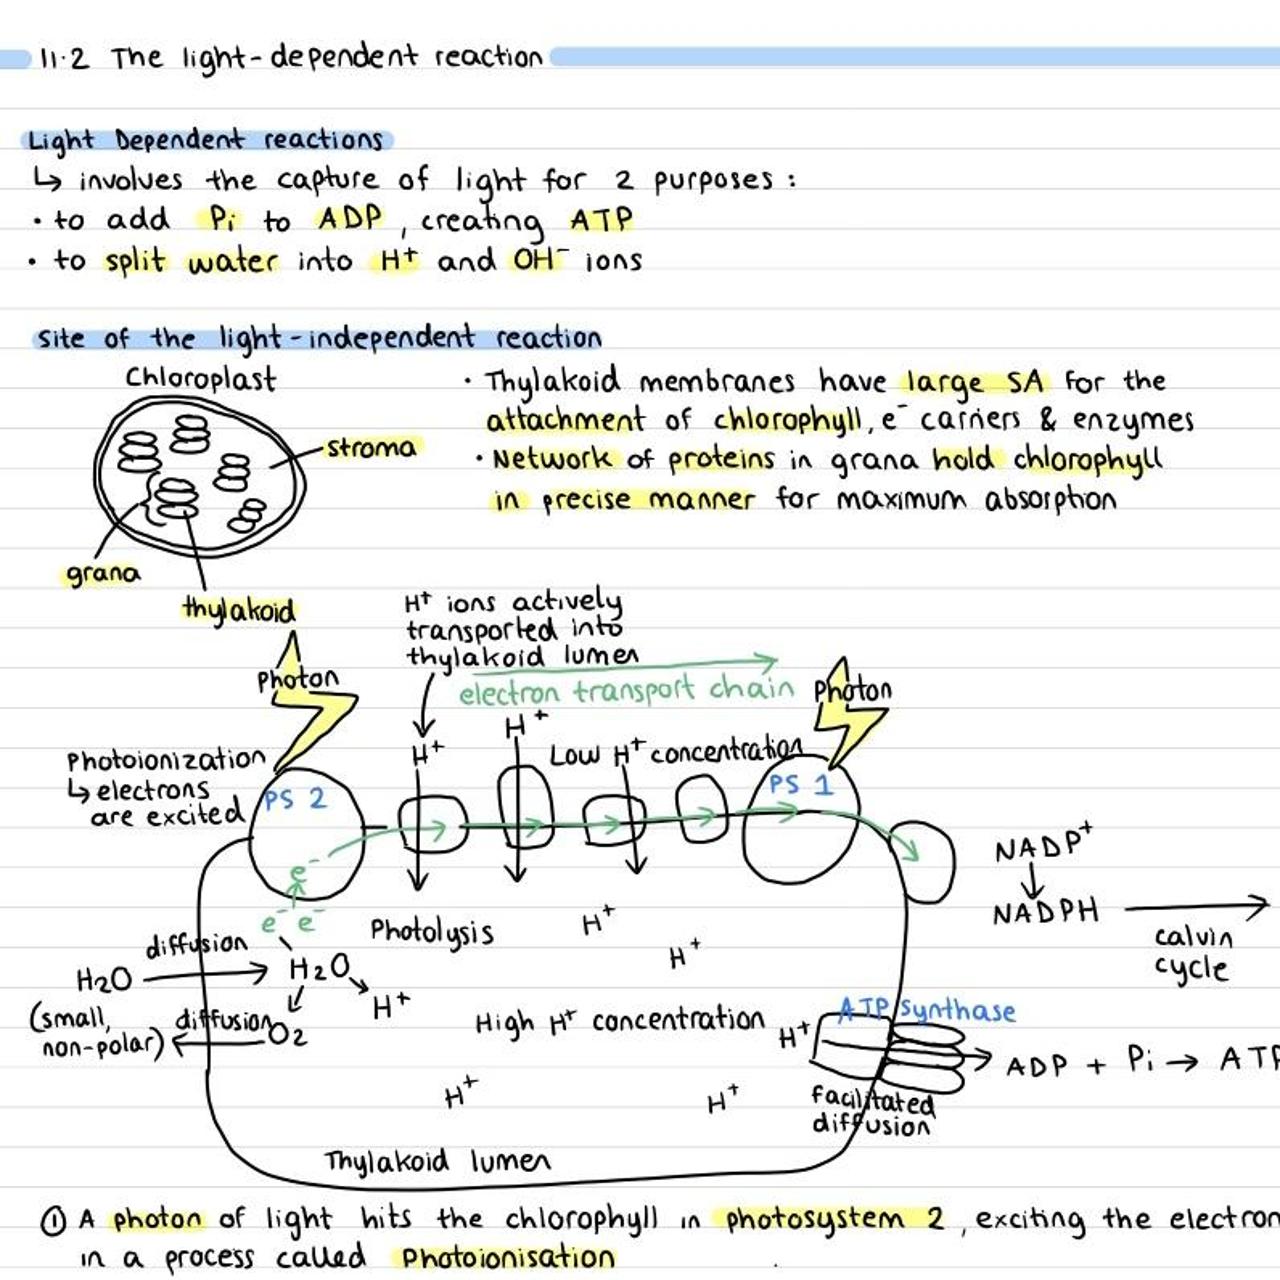 11.2 The light-dependent reaction
Light Dependent reactions
↳ involves the capture of light for 2 purposes :
• to add Pi to ADP, creating ATP
• to split water into H⁺ and OH⁻ ions
Site of the light-independent reaction
Chloroplast
stroma
grana
thylakoid
• Thylakoid membranes have large SA for the
attachment of chlorophyll, e⁻ carriers & enzymes
• Network of proteins in grana hold chlorophyll
in precise manner for maximum absorption
H⁺ ions actively
transported into
thylakoid lumen
electron transport chain
Photon
Photon
Photoionization
↳ electrons
are excited
PS 2
H⁺
H⁺
Low H⁺ concentration
PS 1
e⁻
e⁻ e⁻
NADP⁺
↓
NADPH →
calvin
cycle
diffusion
H₂O → H₂O
(small,
non-polar)
diffusion
O₂
H⁺
Photolysis
H⁺
H⁺
High H⁺ concentration
H⁺
H⁺
H⁺
ATP synthase
ADP + Pi → ATP
facilitated
diffusion
Thylakoid lumen
① A photon of light hits the chlorophyll in photosystem 2, exciting the electron
in a process called Photoionisation